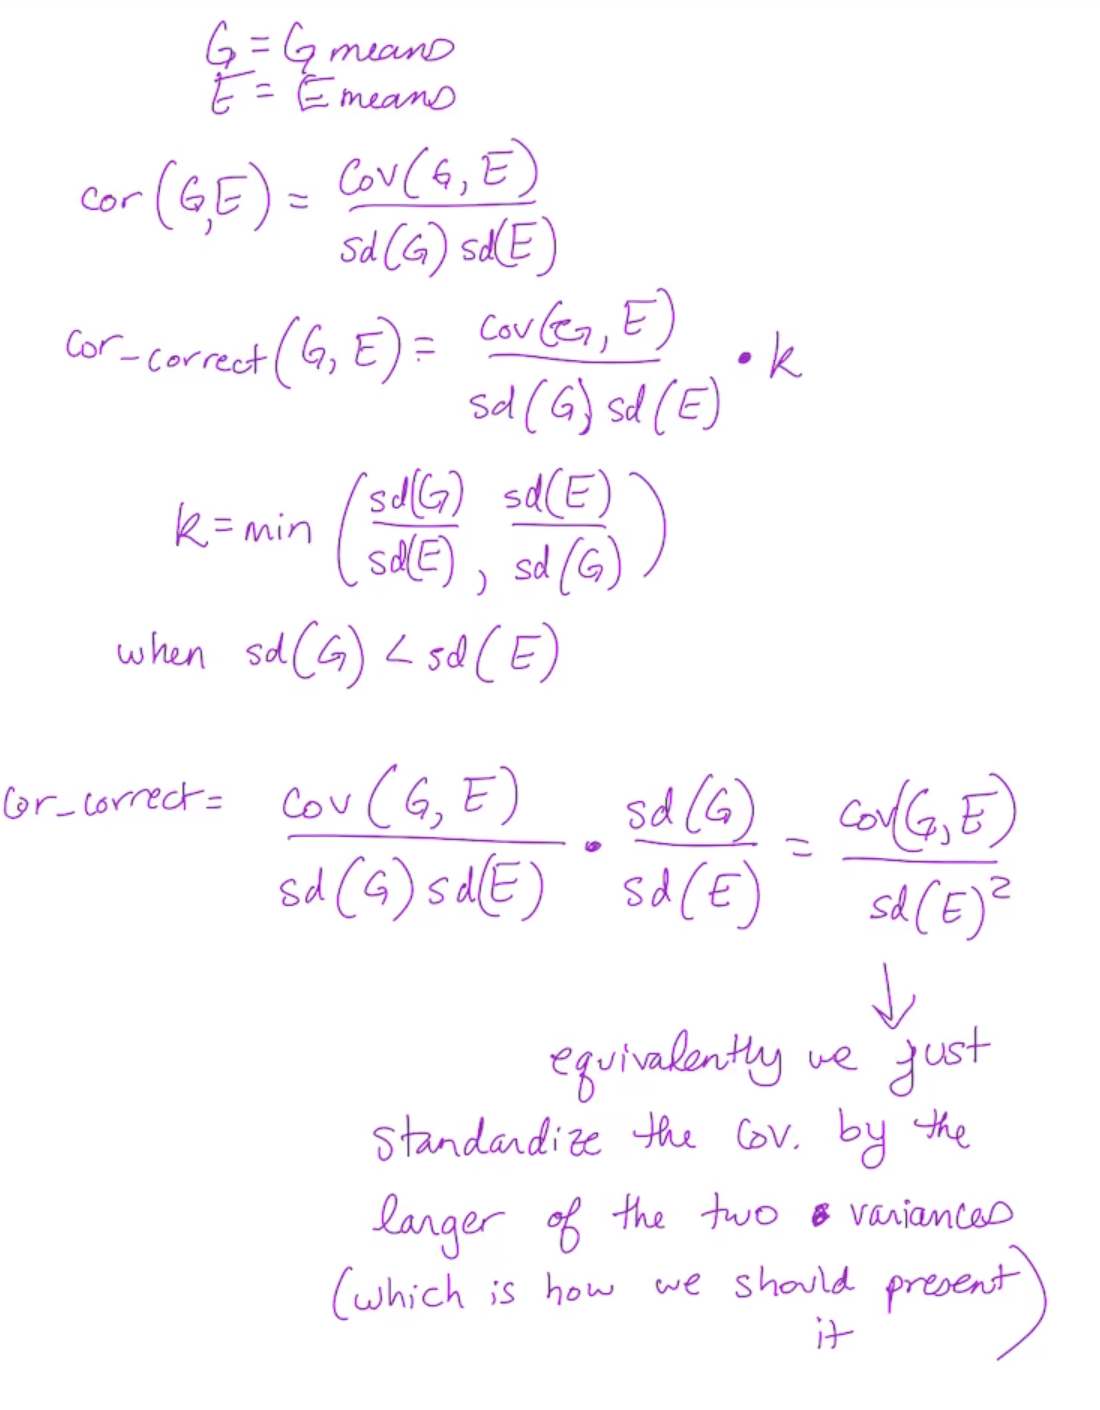 G = G means
E = E means
cor(G,E) = Cov(G, E) / sd(G) sd(E)
cor_correct(G, E) = cov(G, E) / sd(G) sd(E) • k
k = min (sd(G)/sd(E), sd(E)/sd(G))
when sd(G) < sd(E)
Cor_correct = Cov(G, E) / sd(G) sd(E) • sd(G) / sd(E) = Cov(G, E) / sd(E)²
↓
equivalently we just
standardize the Cov. by the
larger of the two variances
(which is how we should present
it)